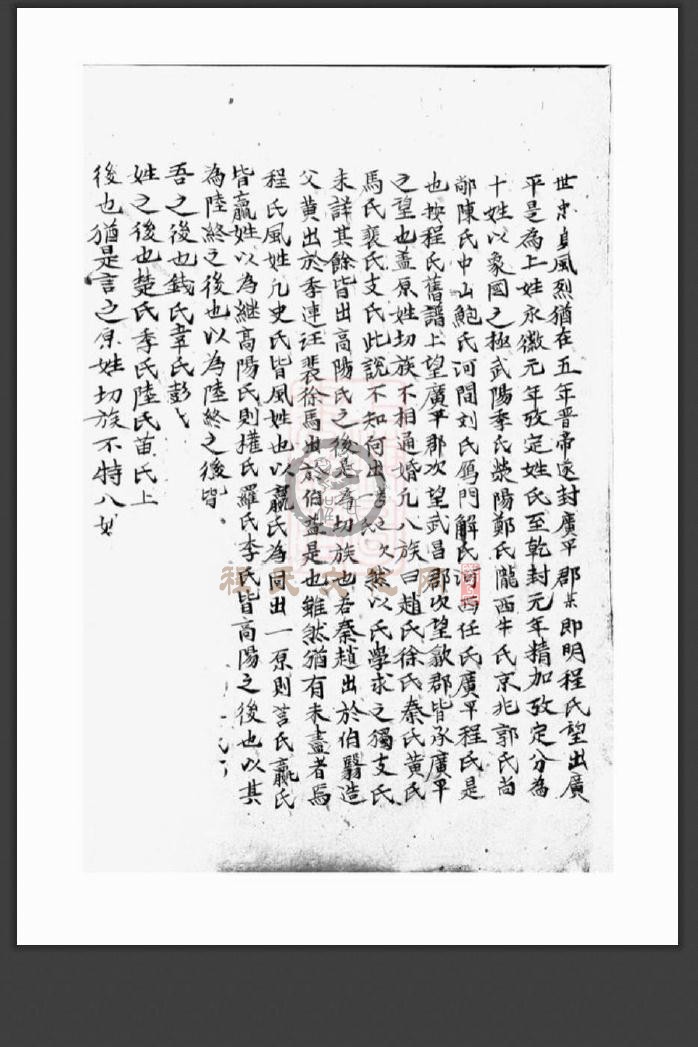 世忠貞風烈猶在五年晉帝遂封廣平郡業即明程氏望出廣
平是為上姓永徽元年攷定姓氏至乾封元年精加攷定分為
十姓以象國之極武陽李氏滎陽鄭氏隴西牛氏京兆郭氏尚
鄢陳氏中山鮑氏河間刘氏鴈門解氏河西任氏廣平程氏是
也按程氏舊譜上望廣平郡次望武昌郡次望歙郡皆承廣平
之望也盖原姓切族不相通婚凢八族曰趙氏徐氏秦氏黄氏
馬氏裴氏支氏此說不知何出次然以氏學求之獨支氏
未詳其餘皆出高陽氏之後是為切族也若秦趙出於伯翳造
父黄出於季連汪裴徐馬出於伯益是也雖然猶有未盡者焉
程氏風姓凢史氏皆風姓也以嬴氏為同出一原則莒氏嬴氏
皆嬴姓以為継高陽氏則權氏羅氏李氏皆高陽之後也以其
為陸終之後也以為陸終之後皆
吾之後也錢氏韋氏彭
姓之後也楚氏季氏陸氏苗氏上
後也猶是言之原姓切族不特八
程氏文化网